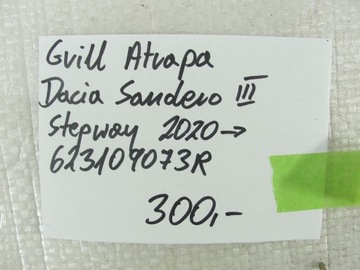 Grill Atrapa
Dacia Sandero III
Stepway 2020→
623109073R
300,-